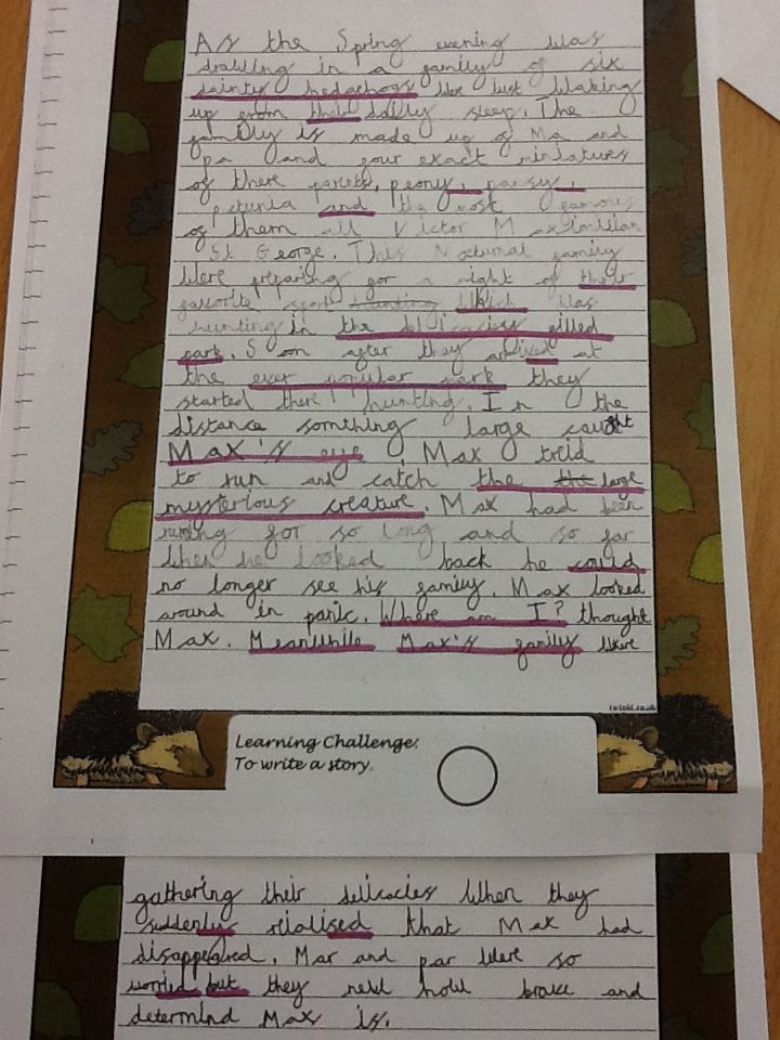 As the Spring evening was
drawing in a family of six
dainty hedgehogs were just waking
up from their daily sleep. The
family is made up of Ma and
pa and four exact miniatures
of there parents, peony, pansy,
petunia and the most famous
of them all Victor Maximilian
St George. This Nocturnal family
were preparing for a night of their
favorite sport hunting which was
hunting in the delicacies filled
park. Soon after they arrived at
the ever popular park they
started there hunting. In the
distance somthing large caught
Max's eye, Max treid
to run and catch the the large
mysterious creature. Max had been
runing for so long and so far
when he looked back he could
no longer see his family. Max looked
around in panic. Where am I? thought
Max. Meanwhile Max's family were
twinkl.co.uk
Learning Challenge:
To write a story.
gathering their delicacies when they
suddenly rialised that Max had
disappeared. Mar and par were so
worried but they new how brave and
determind Max is.